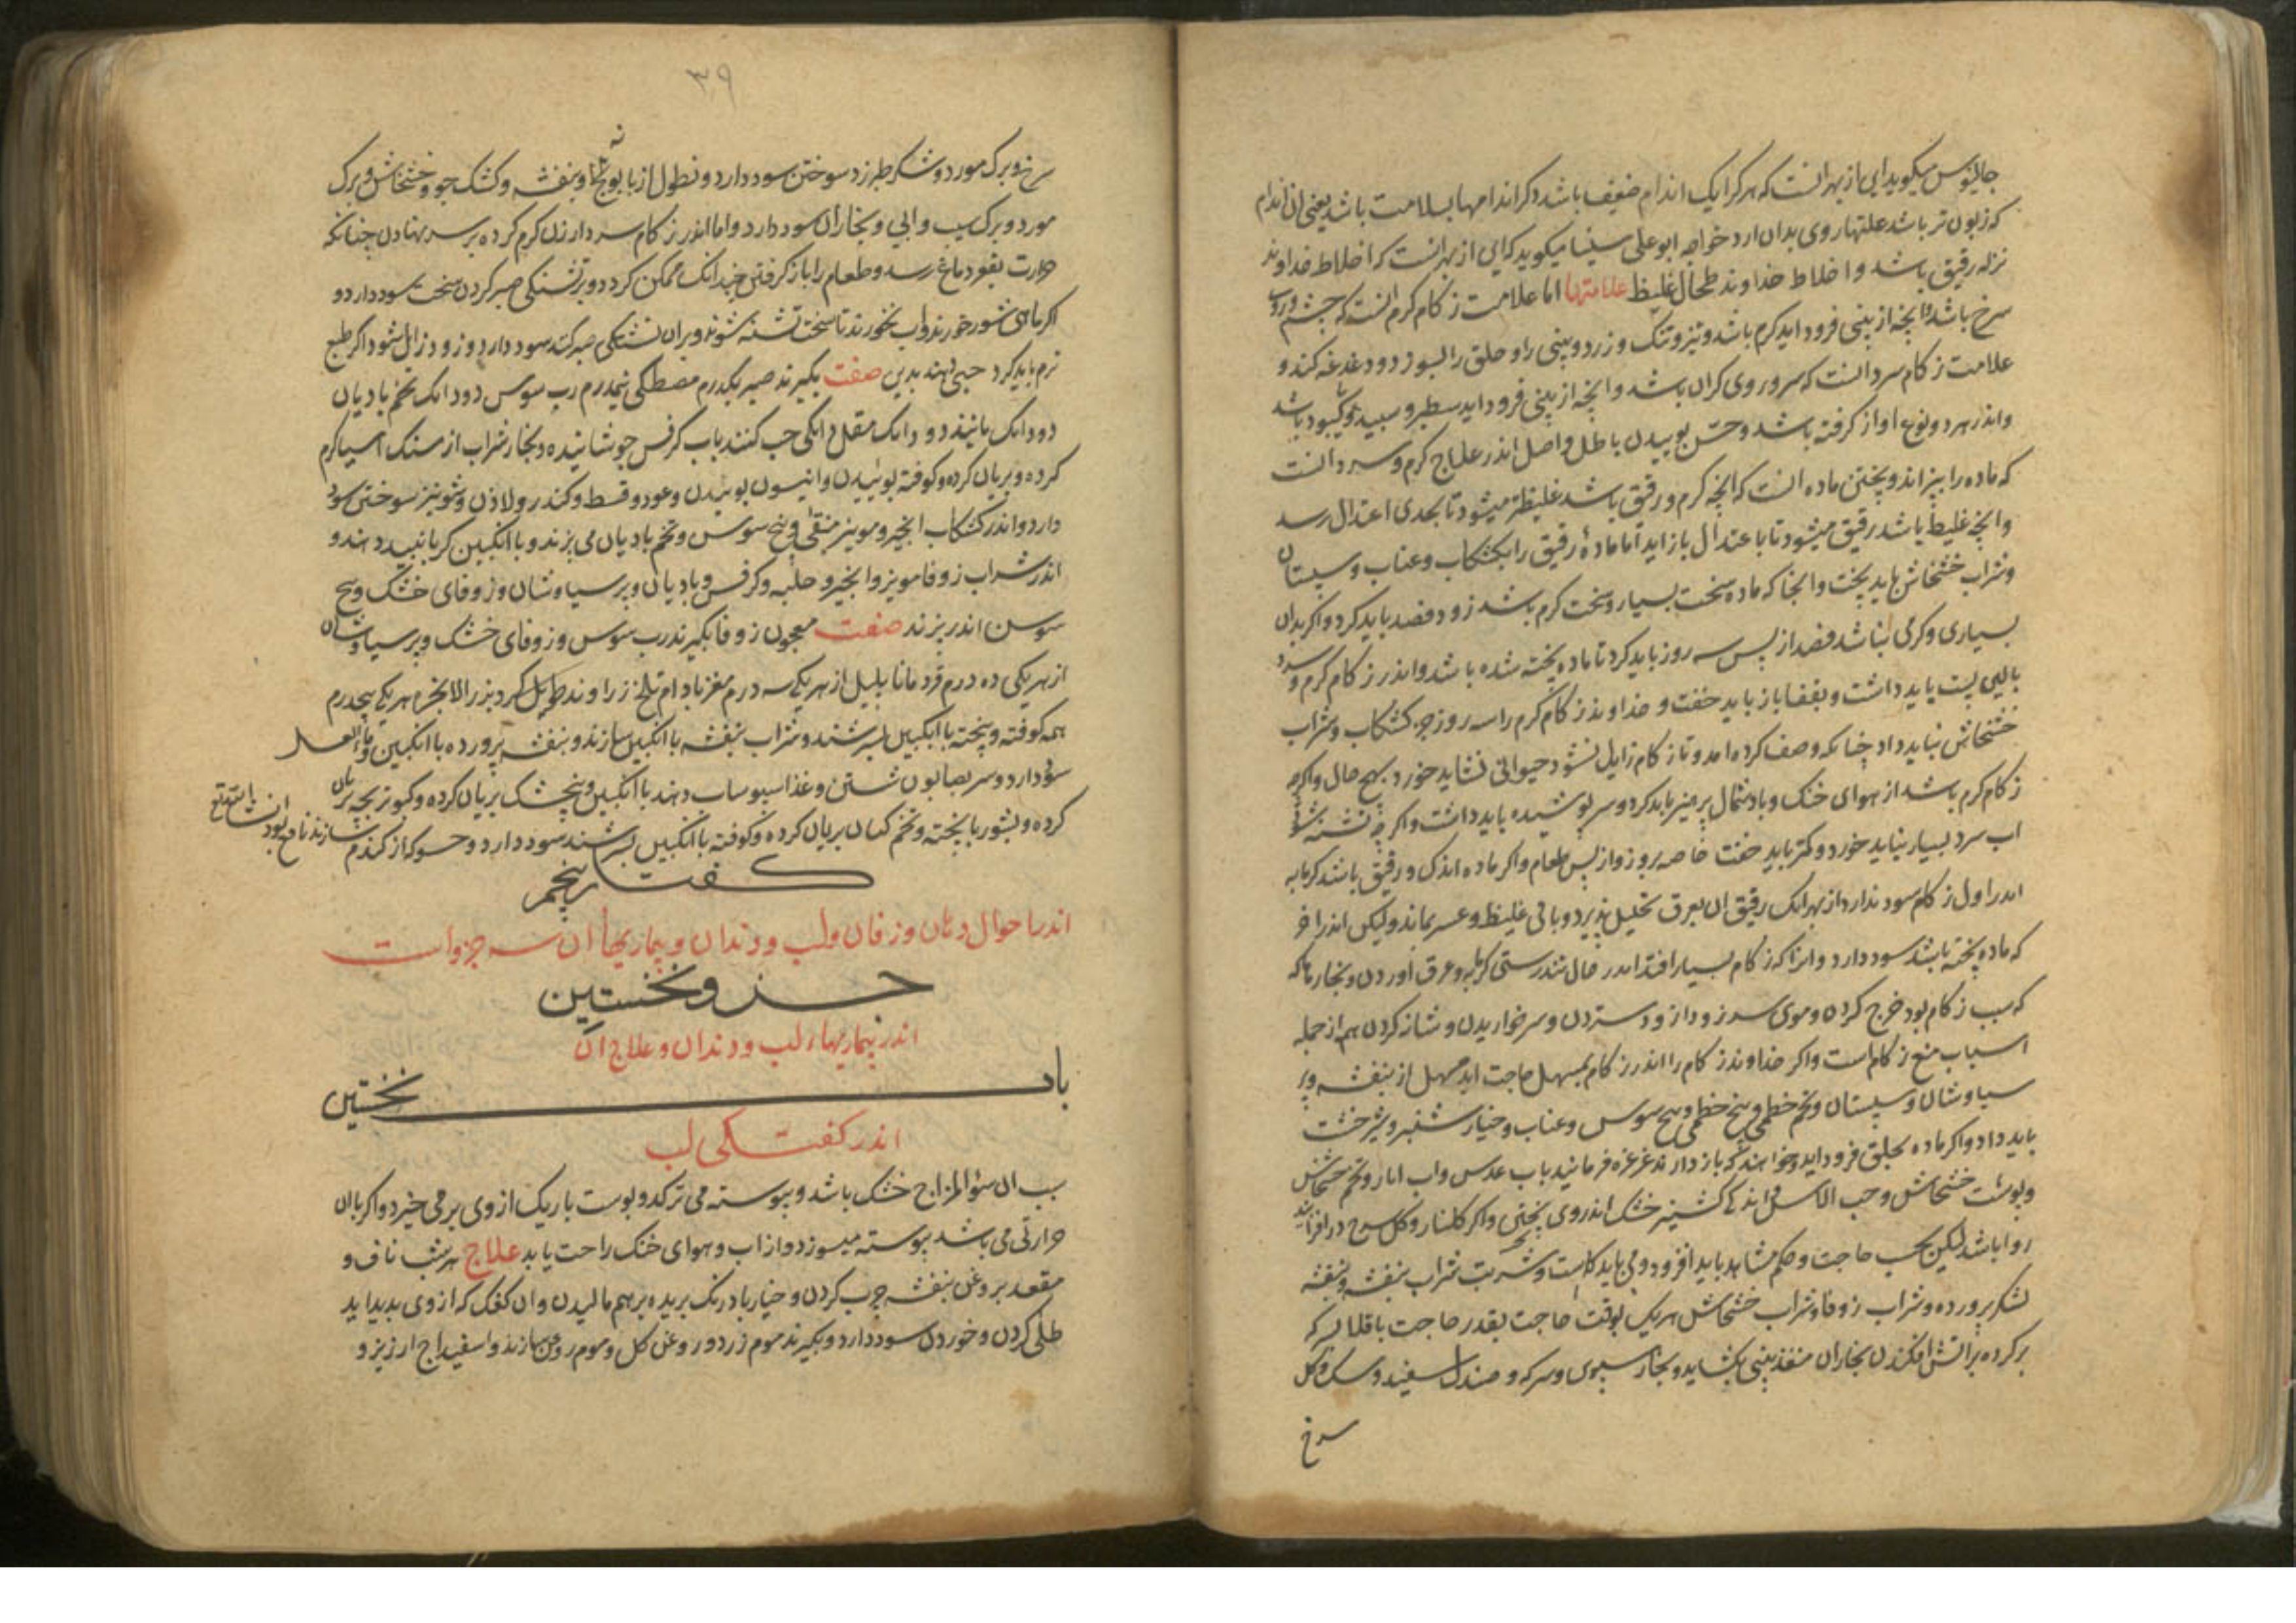 جالینوس میکوید این از بهر انست که هر کرا یک اندام ضعیف باشد دکر اندامها بسلامت باشد یعنی ان اندام
که زبون تر باشد علتها روی بدان ارد خواجه ابوعلی سینا میکوید که این از بهر انست که اخلاط خداوند
نزله رقیق باشد و اخلاط خداوند طحال غلیظ علامتها اما علامت زکام کرم انست که چشم و روی
سرخ باشد و انچه از بینی فرود اید کرم باشد و تیز و تنک و زرد و بینی را و حلق را بسوزد و دغدغه کند و
علامت زکام سرد انست که سر و روی کران باشد و انچه از بینی فرود اید سطبر و سپید یا کبود باشد
و اندر هر دو نوع اواز کرفته باشد و حس بوییدن باطل و اصل اندر علاج کرم و سرد انست
که ماده را بپزاند و پختن ماده انست که انچه کرم و رقیق باشد غلیظتر میشود تا بحدی اعتدال رسد
و انچه غلیظ باشد رقیق میشود تا با عتدال باز اید اما مادۀ رقیق را بکشکاب و عناب و سپستان
و شراب خشخاش باید پخت و انجا که ماده سخت بسیار و سخت کرم باشد زود فصد باید کرد و اکر بدان
بسیاری و کرمی نباشد فصد از پس سه روز باید کرد تا ماده پخته شده باشد و اندر زکام کرم و سرد
بالین پست باید داشت و بقفا باز باید خفت و خداوند زکام کرم را سه روز جز کشکاب و شراب
خشخاش نباید داد چنانکه وصف کرده امد و تا زکام زایل نشود حیوانی نشاید خورد بهیچ حال و اکرچه
زکام کرم باشد از هوای خنک و باد شمال پرهیز باید کرد و سر پوشیده باید داشت و اکرچه تشنه شود
اب سرد بسیار نباید خورد و کمتر باید خفت خاصه بروز و از پس طعام و اکر ماده اندک و رقیق باشد کرمابه
اندر اول زکام سود ندارد از بهر انک رقیق ان بعرق تحلیل پذیرد و باقی غلیظ و عسر بماند و لیکن اندر اخر
که ماده پخته باشد سود دارد و انرا که زکام بسیار افتد اندر حال تندرستی کرمابه و عرق اوردن و بخارها که
که سبب زکام بود خرج کردن و موی سر زود از زود ستردن و سر خواریدن و شانه کردن هم از جمله
اسباب منع زکام است و اکر خداوند زکام را اندر زکام بمسهل حاجت اید مسهل از بنفشه و پر
سیاوشان و سپستان و تخم خطمی و بیخ خطمی و بیخ سوس و عناب و خیار شنبر و شیرخشت
باید داد و اکر ماده بحلق فرود اید و خواهند که باز دارند غرغره فرمایند باب عدس و اب انار و تخم خشخاش
و پوست خشخاش و حب الاس و اندکی کشنیز خشک اندر وی پختن و اکر کلنار و کل سرخ در افزایند
روا باشد لیکن بحسب حاجت و حکم مشاهد باید افزود و می باید کاست و شربت شراب بنفشه و بنفشه
بشکر پرورده و شراب زوفا و شراب خشخاش هر یک بوقت حاجت بقدر حاجت باقلا بسرکه
پر کرده بر اتش افکندن بخار ان منفذ بینی بکشاید و بخار سبوس و سرکه و صندل سفید و کل
سرخ
۳۹
سرخ و برک مورد و شکر طبرزد سوختن سود دارد و نطول از بابونه و بنفشه و کشک جو و خشخاش و برک
مورد و برک سیب و ابی و بخار ان سود دارد و اما اندر زکام سرد ارزن کرم کرده بر سر نهادن چنانکه
حرارت بقعر دماغ رسد و طعام را باز کرفتن چندانک ممکن کردد و بر تشنکی صبر کردن سخت سود دارد و
اکر ماهی شور خورند و اب نخورند تا سخت تشنه شوند و بران تشنکی صبر کنند سود دارد و زود زایل شود اکر طبع
نرم باید کرد حبی دهند بدین صفت بکیرند صبر یکدرم مصطکی نیمدرم رب سوس دو دانک تخم بادیان
دو دانک فانیذ دو دانک مقل دانکی حب کنند باب کرفس جوشانیده و بخار شراب از سنک اسیا کرم
کرده و بریان کرده و کوفته بوییدن و انیسون بوییدن و عود و قسط و کندر و لادن و شونیز سوختن سود
دارد و اندر کشکاب انجیر و مویز منقی و بیخ سوس و تخم بادیان می پزند و با انکبین کرمانیید دهند و
اندر شراب زوفا مویز و انجیر و حلبه و کرفس و بادیان و پرسیاوشان و زوفای خشک و بیخ
سوسن اندر پزند صفت معجون زوفا بکیرند رب سوس و زوفای خشک و پرسیاوشان
از هر یکی ده درم قردمانا پلپل از هر یکی سه درم مغز بادام تلخ زراوند طویل کرد بزر الانجره هر یک پنجدرم
همه کوفته و بیخته با انکبین بسرشند و شراب بنفشه با انکبین سازند و بنفشه پرورده با انکبین و ماء العسل
سود دارد و سر بصابون شستن و غذا سبوساب دهند با انکبین و پنجشک بریان کرده و کبوتر بچه بریان
کرده و بشوربا پخته و تخم کتان بریان کرده و کوفته با انکبین بسرشند سود دارد و حسو که از کندم سازند نافع بود
انشا الله تع
کفتار پنجم
اندر احوال دهان و زفان و لب و دندان و بیماریهاٴ ان سه جزو است
جزو نخستین
اندر بیماریهاء لب و دندان و علاج ان
باب نخستین
اندر کفتکی لب
سبب ان سوٴ المزاج خشک باشد و پیوسته می ترکد و پوست باریک از وی بر می خیزد و اکر با ان
حرارتی می باشد پیوسته میسوزد و از اب و هوای خنک راحت یابد علاج هر شب ناف و
مقعد بروغن بنفشه چرب کردن و خیار بادرنک بریده بر هم مالیدن و ان کفک که از وی پدید اید
طلی کردن و خوردن سود دارد و بکیرند موم زرد و روغن کل و موم روغن سازند و اسفیداج ارزیز و